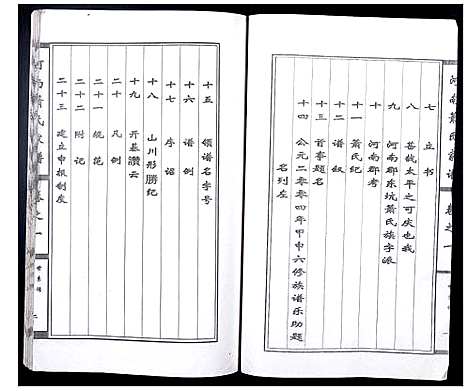 河南萧氏族谱
卷之一
七 立书
八 甚钦太平之可庆也哉
九 河南郡东坑萧氏族字派
十 河南郡考
十一 萧氏纪
十二 谱叙
十三 首事题名
十四 公元二零零四年甲申六修族谱乐助题
名列左
一
十五 领谱名字号
十六 谱例
十七 序诏
十八 山川形勝纪
十九 开基讚云
二十 凡例
二十一 规范
二十二 附记
二十三 建立申报制度
卷之一
二